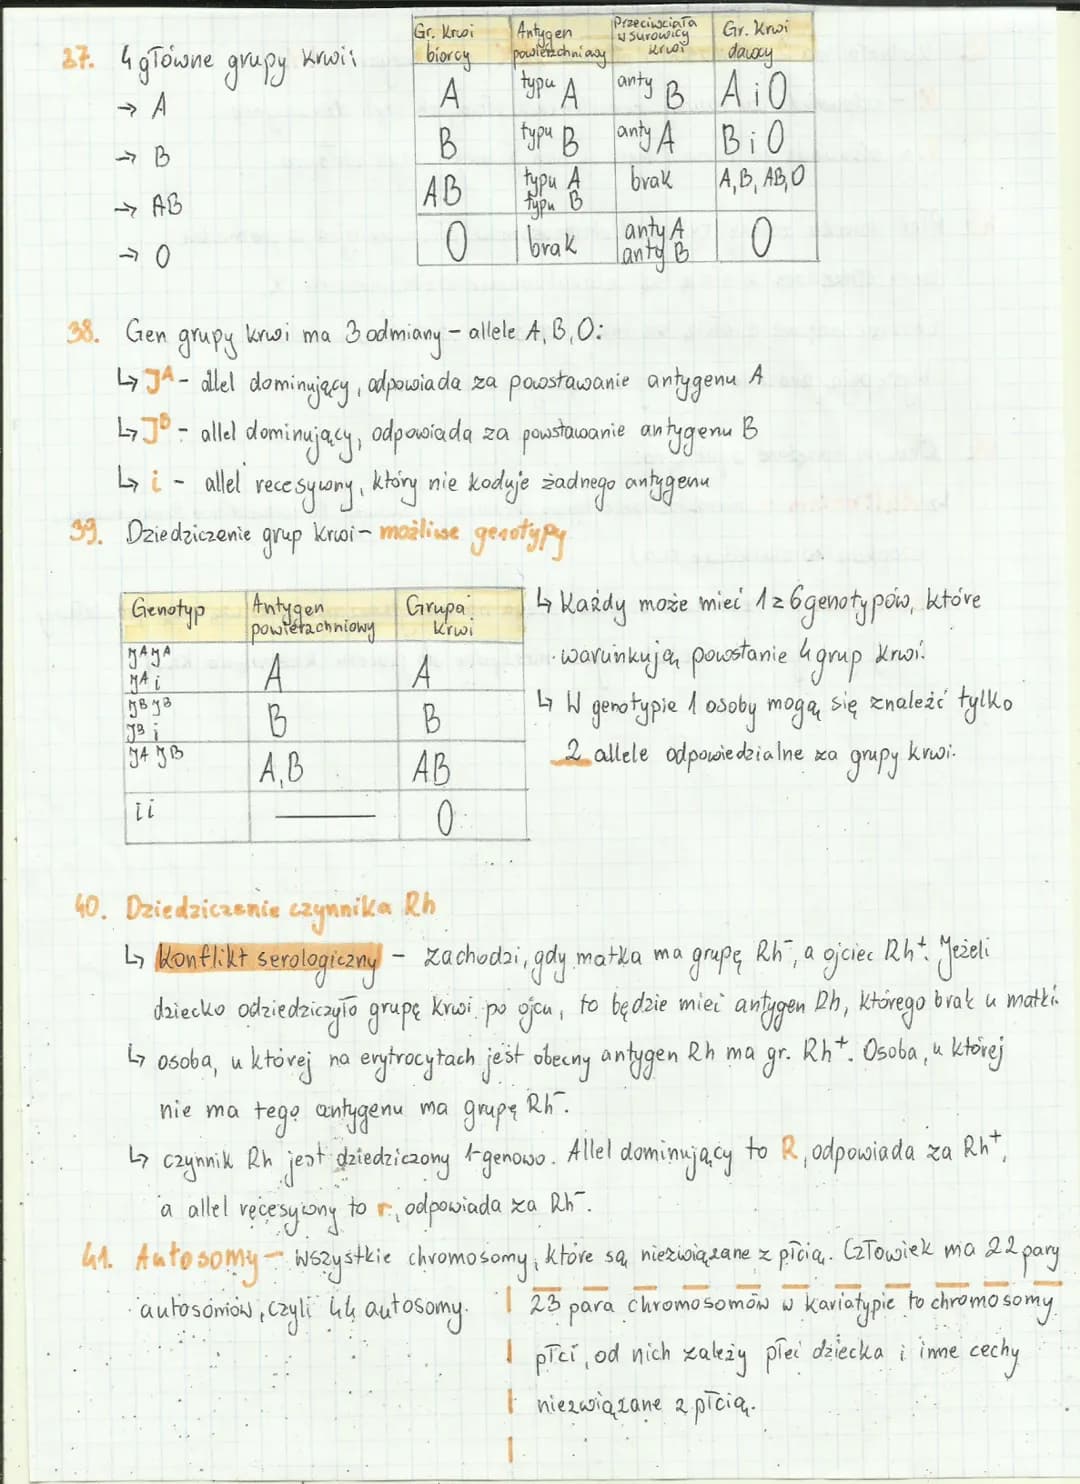 37. 4 główne grupy krwi:
→ A
→ B
→ AB
→ 0
Gr. Krwi biorcy | Antygen powierzchniowy | Przeciwciała w surowicy krwi | Gr. Krwi dawcy
A | typu A | anty B | A i 0
B | typu B | anty A | B i 0
AB | typu A typu B | brak | A, B, AB, 0
0 | brak | anty A anty B | 0
38. Gen grupy krwi ma 3 odmiany – allele A, B, 0:
↳ Iᴬ - allel dominujący, odpowiada za powstawanie antygenu A
↳ Iᴮ - allel dominujący, odpowiada za powstawanie antygenu B
↳ i - allel recesywny, który nie koduje żadnego antygenu
39. Dziedziczenie grup krwi - możliwe genotypy
Genotyp | Antygen powierzchniowy | Grupa krwi
IᴬIᴬ Iᴬi | A | A
IᴮIᴮ Iᴮi | B | B
IᴬIᴮ | A, B | AB
ii | — | 0
↳ Każdy może mieć 1 z 6 genotypów, które
warunkują powstanie 4 grup krwi.
↳ W genotypie 1 osoby mogą się znaleźć tylko
2 allele odpowiedzialne za grupy krwi.
40. Dziedziczenie czynnika Rh
↳ Konflikt serologiczny - zachodzi, gdy matka ma grupę Rh⁻, a ojciec Rh⁺. Jeżeli
dziecko odziedziczyło grupę krwi po ojcu, to będzie mieć antygen Rh, którego brak u matki.
↳ osoba, u której na erytrocytach jest obecny antygen Rh ma gr. Rh⁺. Osoba, u której
nie ma tego antygenu ma grupę Rh⁻.
↳ czynnik Rh jest dziedziczony 1-genowo. Allel dominujący to R, odpowiada za Rh⁺,
a allel recesywny to r, odpowiada za Rh⁻.
41. Autosomy - wszystkie chromosomy, które są niezwiązane z płcią. Człowiek ma 22 pary
autosomów, czyli 44 autosomy.
23 para chromosomów w kariatypie to chromosomy
płci, od nich zależy płeć dziecka i inne cechy
niezwiązane z płcią.